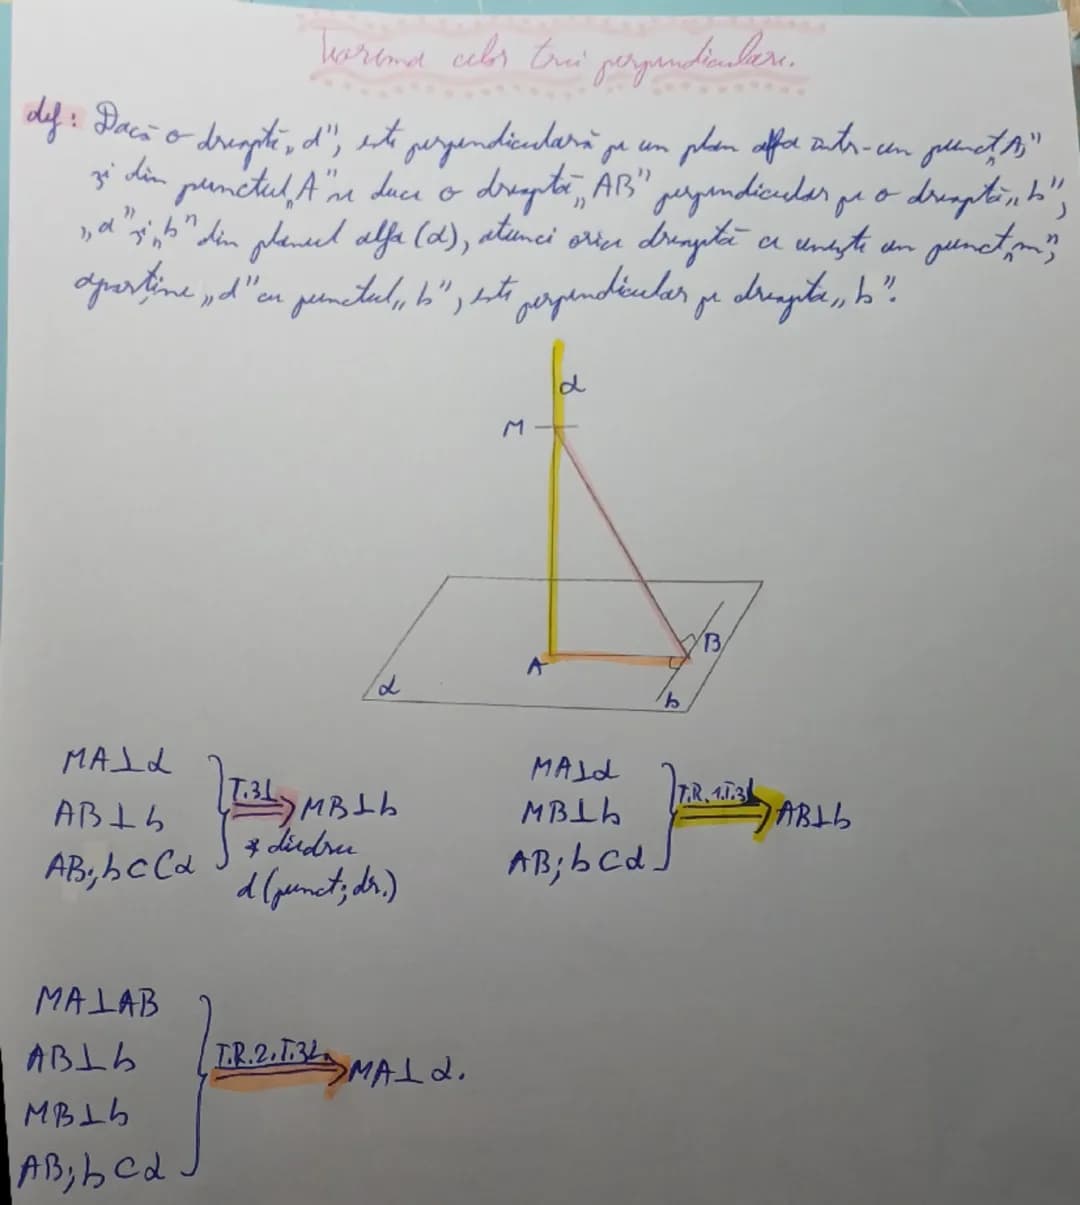 Teorema celor trei perpendiculare.
def: Dacă o dreaptă „d", este perpendiculară pe un plan alfa într-un punct „A"
și din punctul „A" se duce o dreaptă „AB" perpendicular pe o dreaptă „b",
„d" și „b" din planul alfa (α), atunci orice dreaptă ce unește un punct „m",
aparține „d" cu punctul „b", este perpendicular pe dreapta „b".
d
M
A
B
α
b
MA⊥α
AB⊥b
AB;b⊂(α
T.3⊥
MB⊥b
* diedru
d(punct; dr.)
MA⊥α
MB⊥b
AB;b⊂α
T.R.1.T.3⊥
AB⊥b
MA⊥AB
AB⊥b
MB⊥b
AB;b⊂α
T.R.2.T.3⊥
MA⊥α.